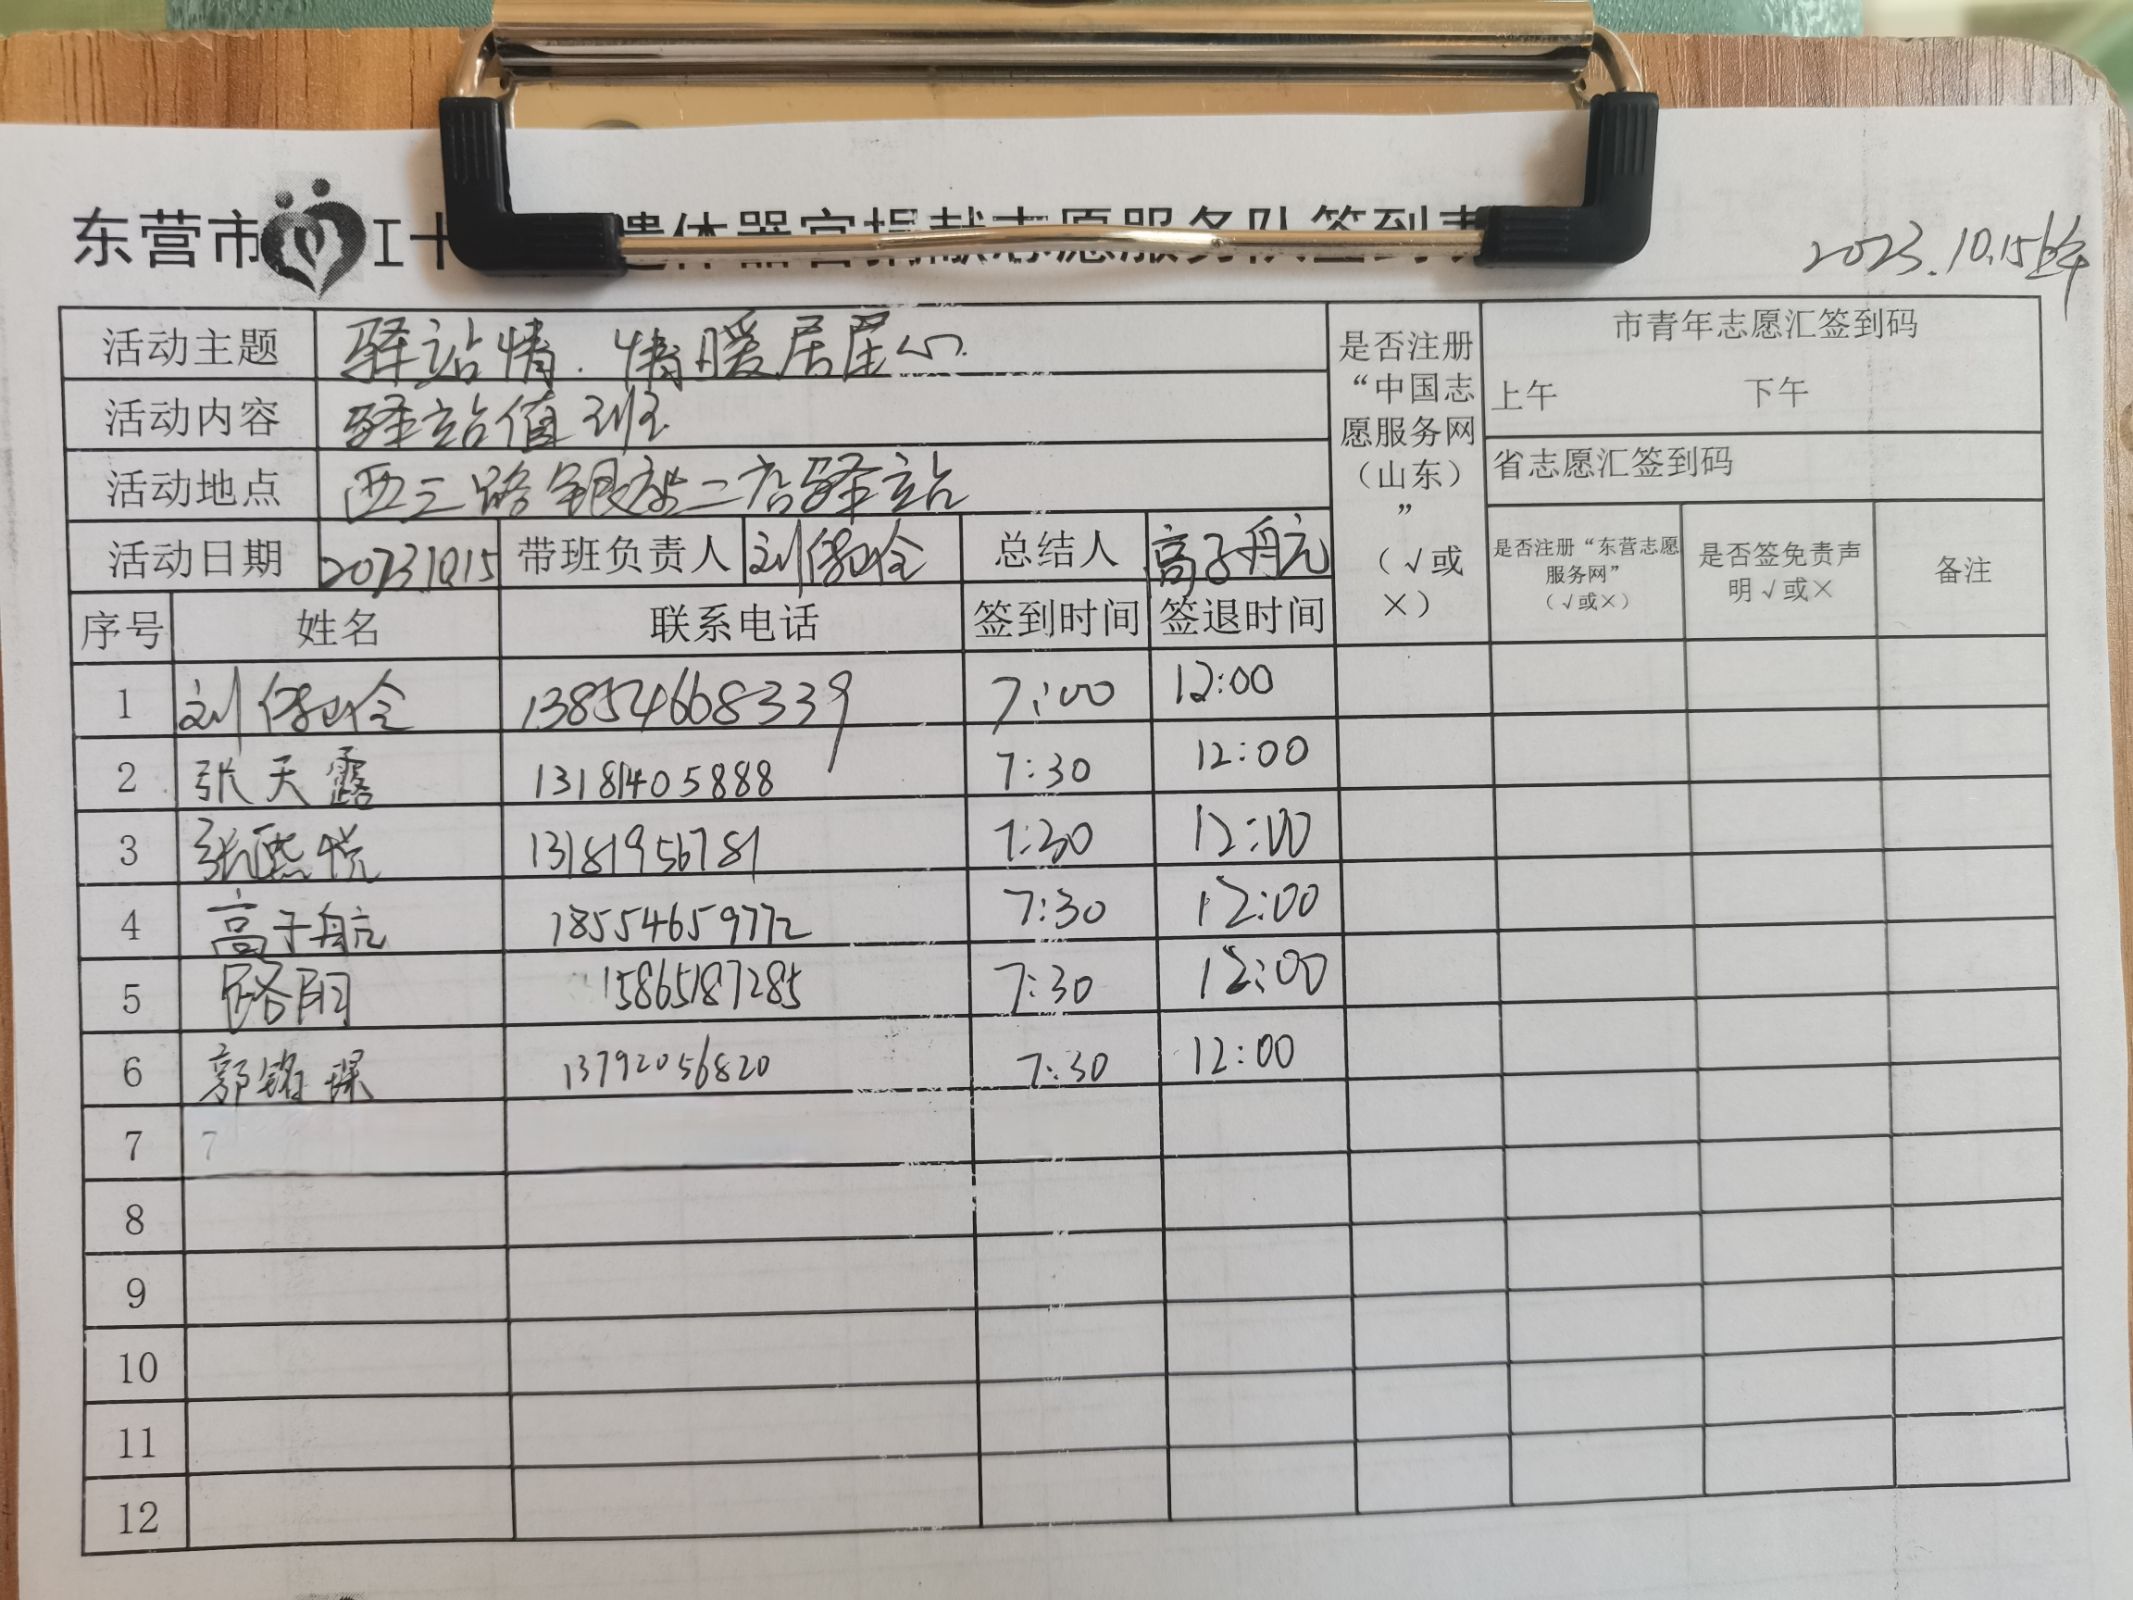 东营市 遗体器官捐献志愿服务队签到表
2023.10.15上午
活动主题 驿站情.情暖居星心.
活动内容 驿站值班
活动地点 西三路银座二店驿站
活动日期 2023.10.15 带班负责人 总结人 高子航
是否注册“中国志愿服务网（山东）”（√或×）
市青年志愿汇签到码
上午 下午
省志愿汇签到码
是否注册“东营志愿服务网”（√或×） 是否签免责声明√或× 备注
序号 姓名 联系电话 签到时间 签退时间
1 13854668339 7:00 12:00
2 张天露 13181405888 7:30 12:00
3 张熙悦 13181956781 7:30 12:00
4 高子航 18554659772 7:30 12:00
5 路阳 15865187285 7:30 12:00
6 郭铭琛 13792056820 7:30 12:00
7 7
8
9
10
11
12